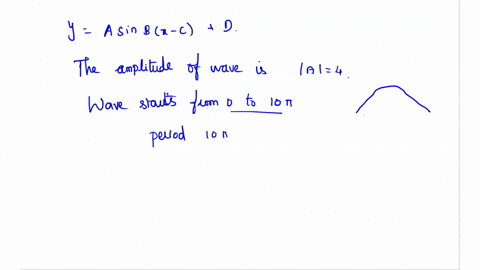 y = A sin B(x-c) + D.
The amplitude of wave is |A| = 4.
Wave starts from 0 to 10π
period 10π